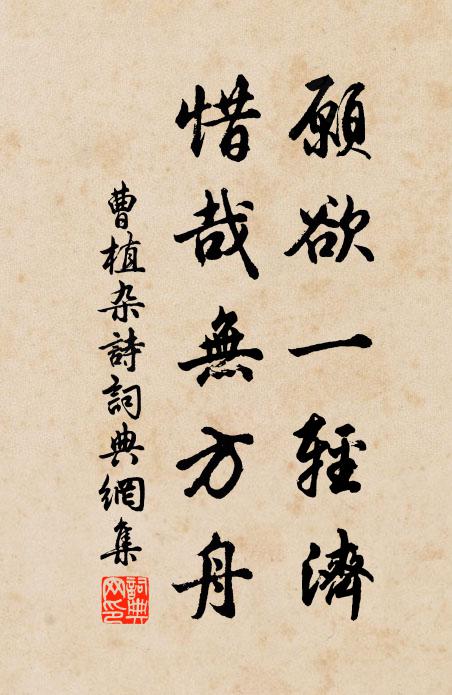 願欲一輕濟
惜哉無方舟
曹植杂詩詞典網集
詞典
网印